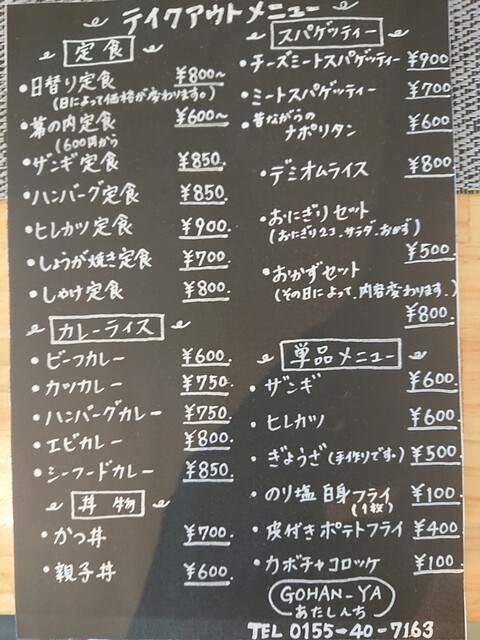 テイクアウトメニュー
定食
・日替り定食 ¥800〜
(日によって価格が変わります。)
・幕の内定食 ¥600〜
(600円から
・ザンギ定食 ¥850.
・ハンバーグ定食 ¥850.
・ヒレカツ定食 ¥900.
・しょうが焼き定食 ¥700.
・しゃけ定食 ¥800.
カレーライス
・ビーフカレー ¥600.
・カツカレー ¥750.
・ハンバーグカレー ¥750.
・エビカレー ¥800.
・シーフードカレー ¥850.
丼物
・かつ丼 ¥700.
・親子丼 ¥600.
スパゲッティー
・チーズミートスパゲッティー ¥900
・ミートスパゲッティー ¥700
・昔ながらの
ナポリタン ¥600
・デミオムライス ¥800
・おにぎりセット
(おにぎり2コ.サラダ.おかず)
¥500.
・おかずセット
(その日によって.内容変わります.)
¥800.
単品メニュー
・ザンギ ¥600.
・ヒレカツ ¥600.
・ぎょうざ(手作りです。) ¥500.
・のり塩白身フライ ¥100.
(1枚)
・皮付きポテトフライ ¥400.
・カボチャコロッケ ¥100.
GOHAN-YA
あたしんち
TEL 0155-40-7163